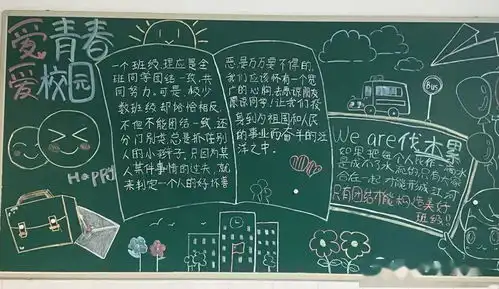 爱青春
爱校园
Happy
一个班级,理应是全
班同学团结一致,共
同努力。可是,极少
数班级却恰恰相反,
不但不能团结一致,还
分门别类,总是抓住别
人的小辫子,只因为某
人某件事情的过失,就
来判定一个人的好坏善
恶,是万万要不得的。
我们应该怀有一个宽
广的心胸,去原谅朋友
原谅同学!让我们投
身到为祖国和人民
的事业而奋斗的汪
洋之中。
Bus
We are伐木累
如果把每个人比作一滴水
是成不了水流的,只有大家
合在一起,才能形成江河
只有团结才能构造美好
班级!!